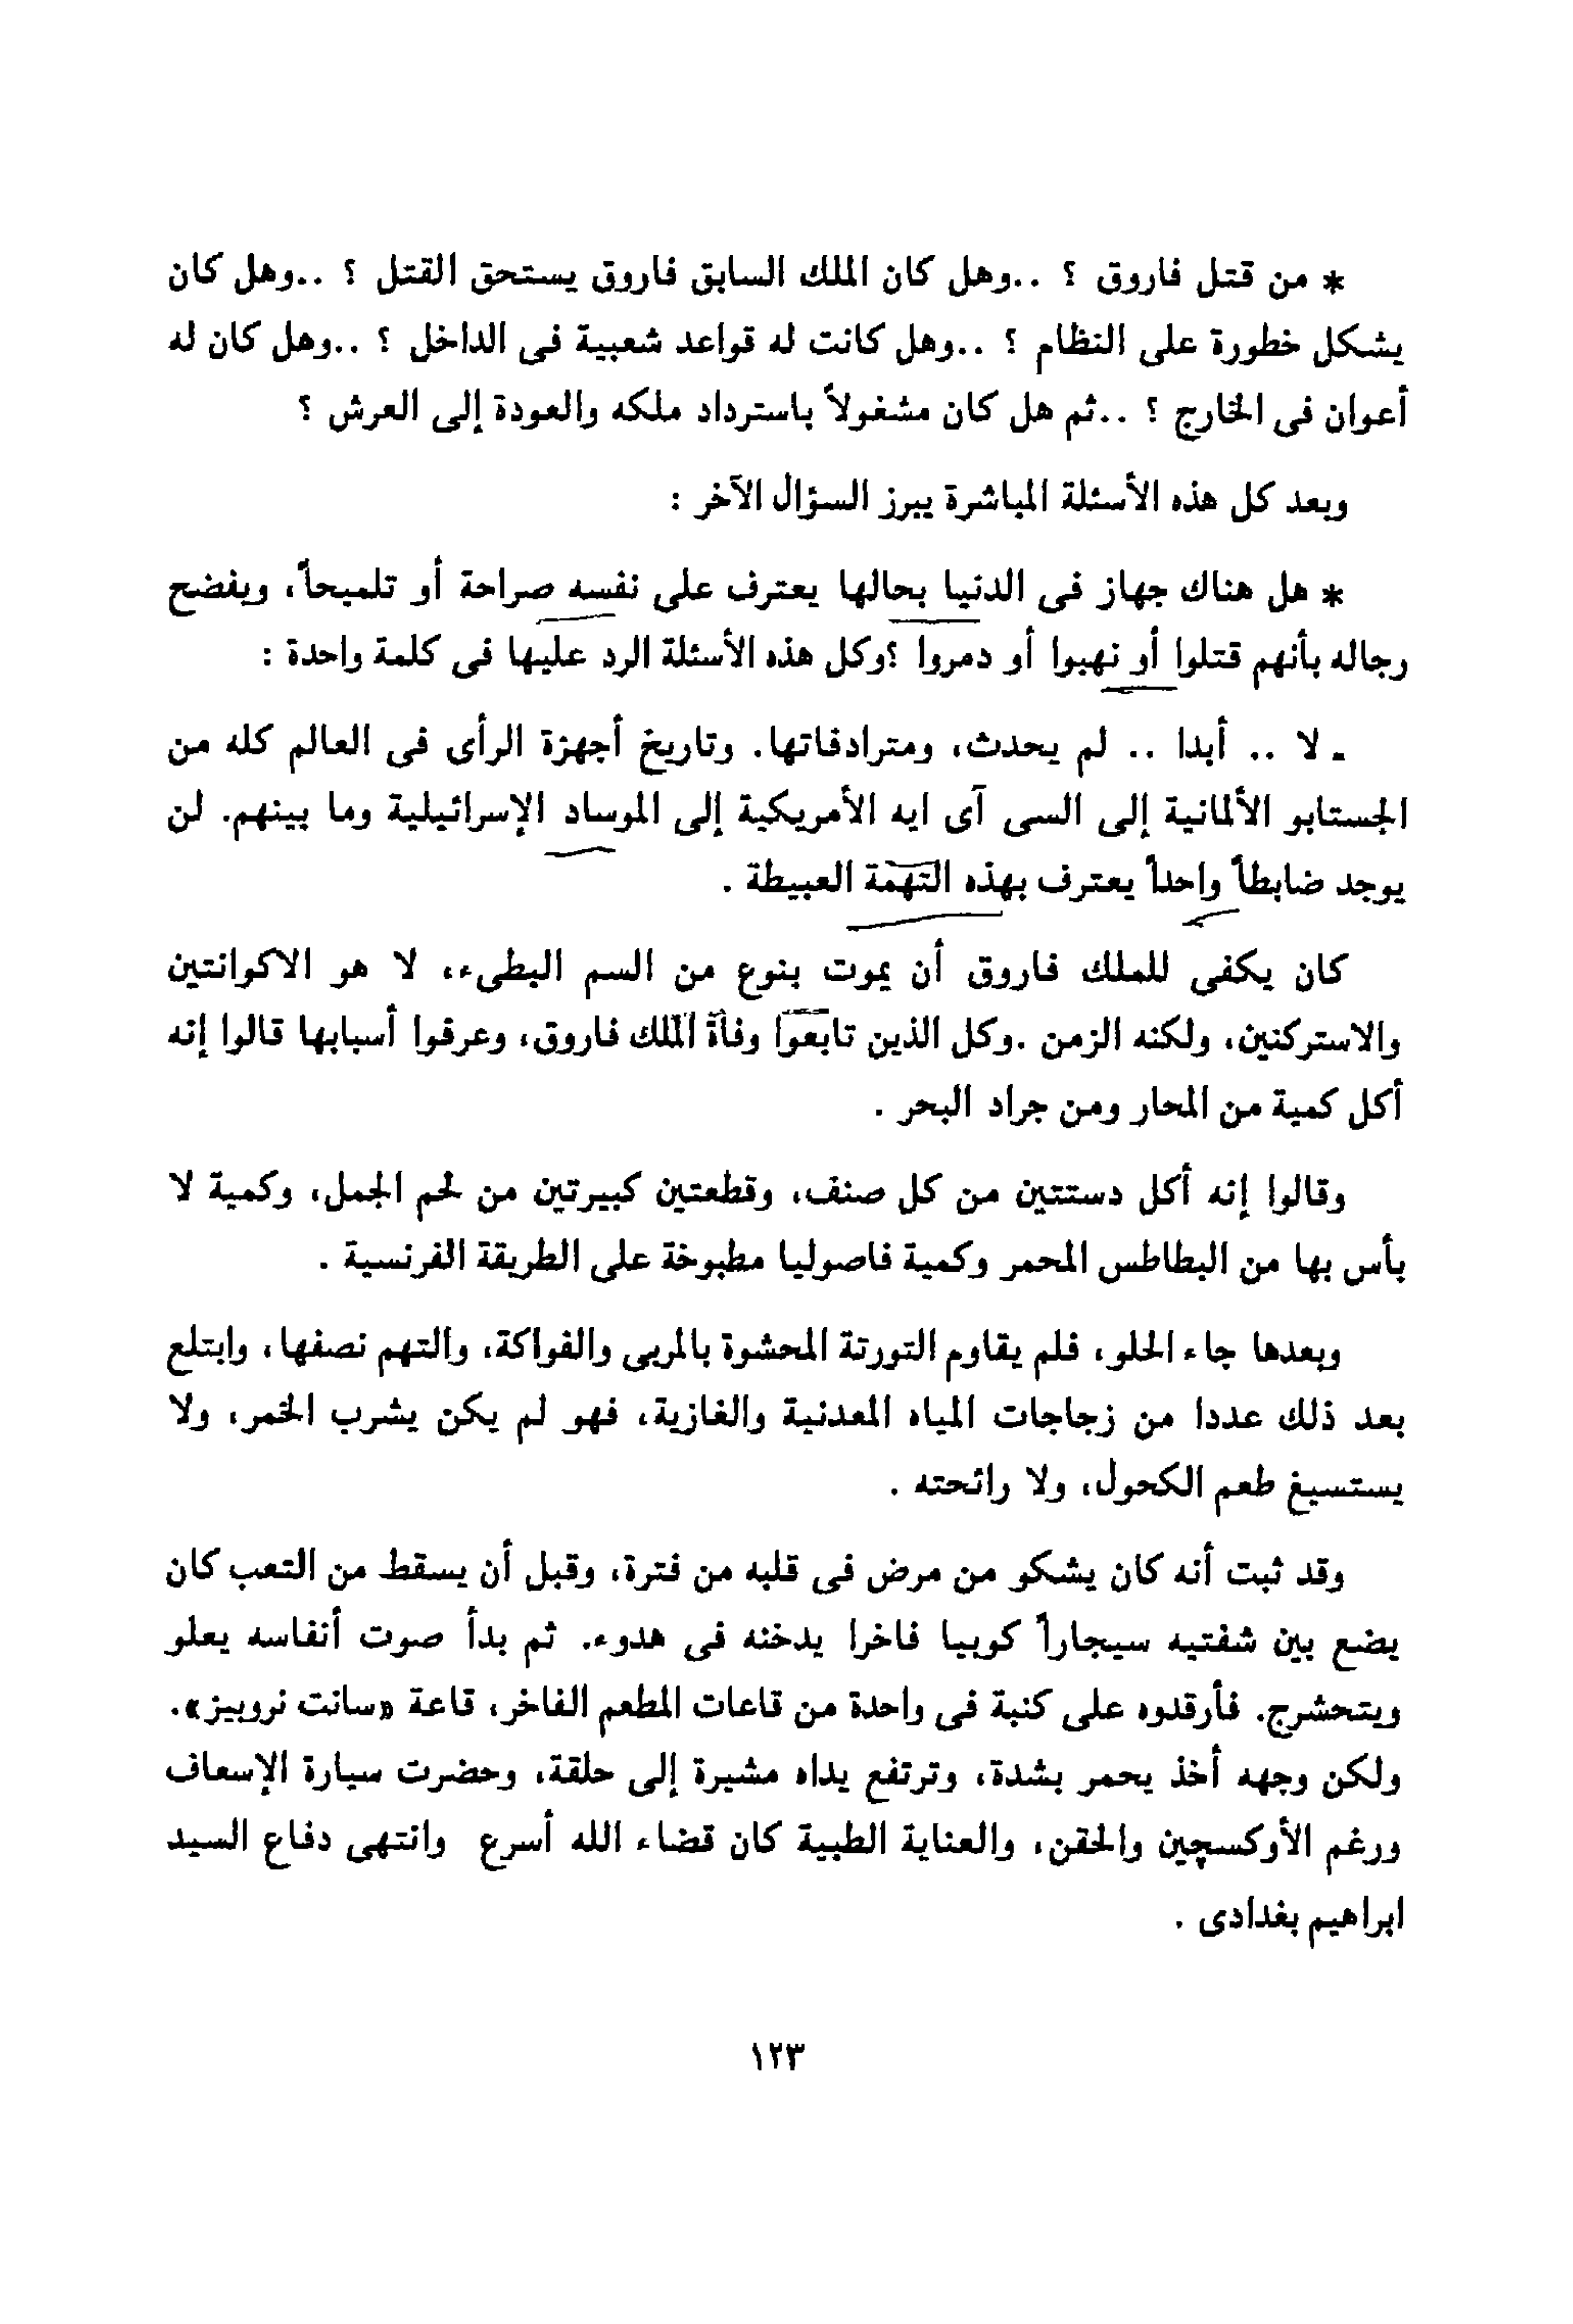 * من قتل فاروق ؟ ..وهل كان الملك السابق فاروق يستحق القتل ؟ ..وهل كان
يشكل خطورة على النظام ؟ ..وهل كانت له قواعد شعبية فى الداخل ؟ ..وهل كان له
أعوان فى الخارج ؟ ..ثم هل كان مشغولاً باسترداد ملكه والعودة إلى العرش ؟
وبعد كل هذه الأسئلة المباشرة يبرز السؤال الآخر :
* هل هناك جهاز فى الدنيا بحالها يعترف على نفسه صراحة أو تلميحاً، ويفضح
رجاله بأنهم قتلوا أو نهبوا أو دمروا ؟وكل هذه الأسئلة الرد عليها فى كلمة واحدة :
ـ لا .. أبدا .. لم يحدث، ومترادفاتها. وتاريخ أجهزة الرأى فى العالم كله من
الجستابو الألمانية إلى السى آى ايه الأمريكية إلى الموساد الإسرائيلية وما بينهم. لن
يوجد ضابطاً واحداً يعترف بهذه التهمة العبيطة .
كان يكفى للملك فاروق أن يموت بنوع من السم البطىء، لا هو الاكوانتين
والاستركنين، ولكنه الزمن .وكل الذين تابعوا وفاة الملك فاروق، وعرفوا أسبابها قالوا إنه
أكل كمية من المحار ومن جراد البحر .
وقالوا إنه أكل دستتين من كل صنف، وقطعتين كبيرتين من لحم الجمل، وكمية لا
بأس بها من البطاطس المحمر وكمية فاصوليا مطبوخة على الطريقة الفرنسية .
وبعدها جاء الحلو، فلم يقاوم التورتة المحشوة بالمربى والفواكة، والتهم نصفها، وابتلع
بعد ذلك عددا من زجاجات المياه المعدنية والغازية، فهو لم يكن يشرب الخمر، ولا
يستسيغ طعم الكحول، ولا رائحته .
وقد ثبت أنه كان يشكو من مرض فى قلبه من فترة، وقبل أن يسقط من التعب كان
يضع بين شفتيه سيجاراً كوبيا فاخرا يدخنه فى هدوء. ثم بدأ صوت أنفاسه يعلو
ويتحشرج. فأرقدوه على كنبة فى واحدة من قاعات المطعم الفاخر، قاعة «سانت نروبيز».
ولكن وجهه أخذ يحمر بشدة، وترتفع يداه مشيرة إلى حلقة، وحضرت سيارة الإسعاف
ورغم الأوكسچين والحقن، والعناية الطبية كان قضاء الله أسرع وانتهى دفاع السيد
ابراهيم بغدادى .
١٢٣